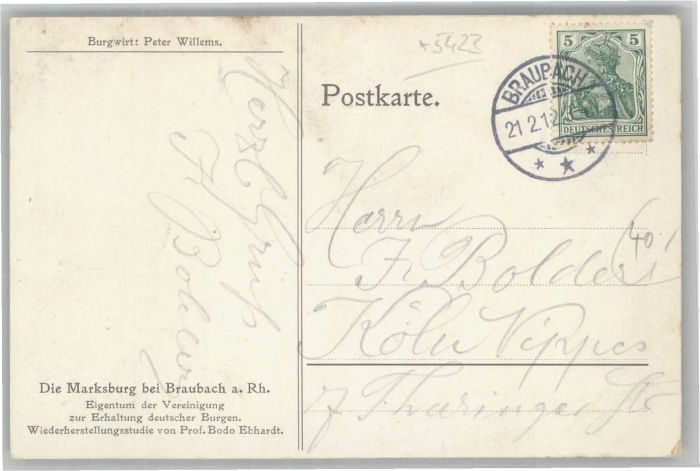 Burgwirt: Peter Willems.
Herzl. Gruß
F.
Die Marksburg bei Braubach a. Rh.
Eigentum der Vereinigung
zur Erhaltung deutscher Burgen.
Wiederherstellungsstudie von Prof. Bodo Ebhardt.
*5423
Postkarte.
5 5
DEUTSCHES REICH
BRAUBACH
21 2.12
Herrn
Fr. Bolder
Köln Nippes
Thüringer Str
40